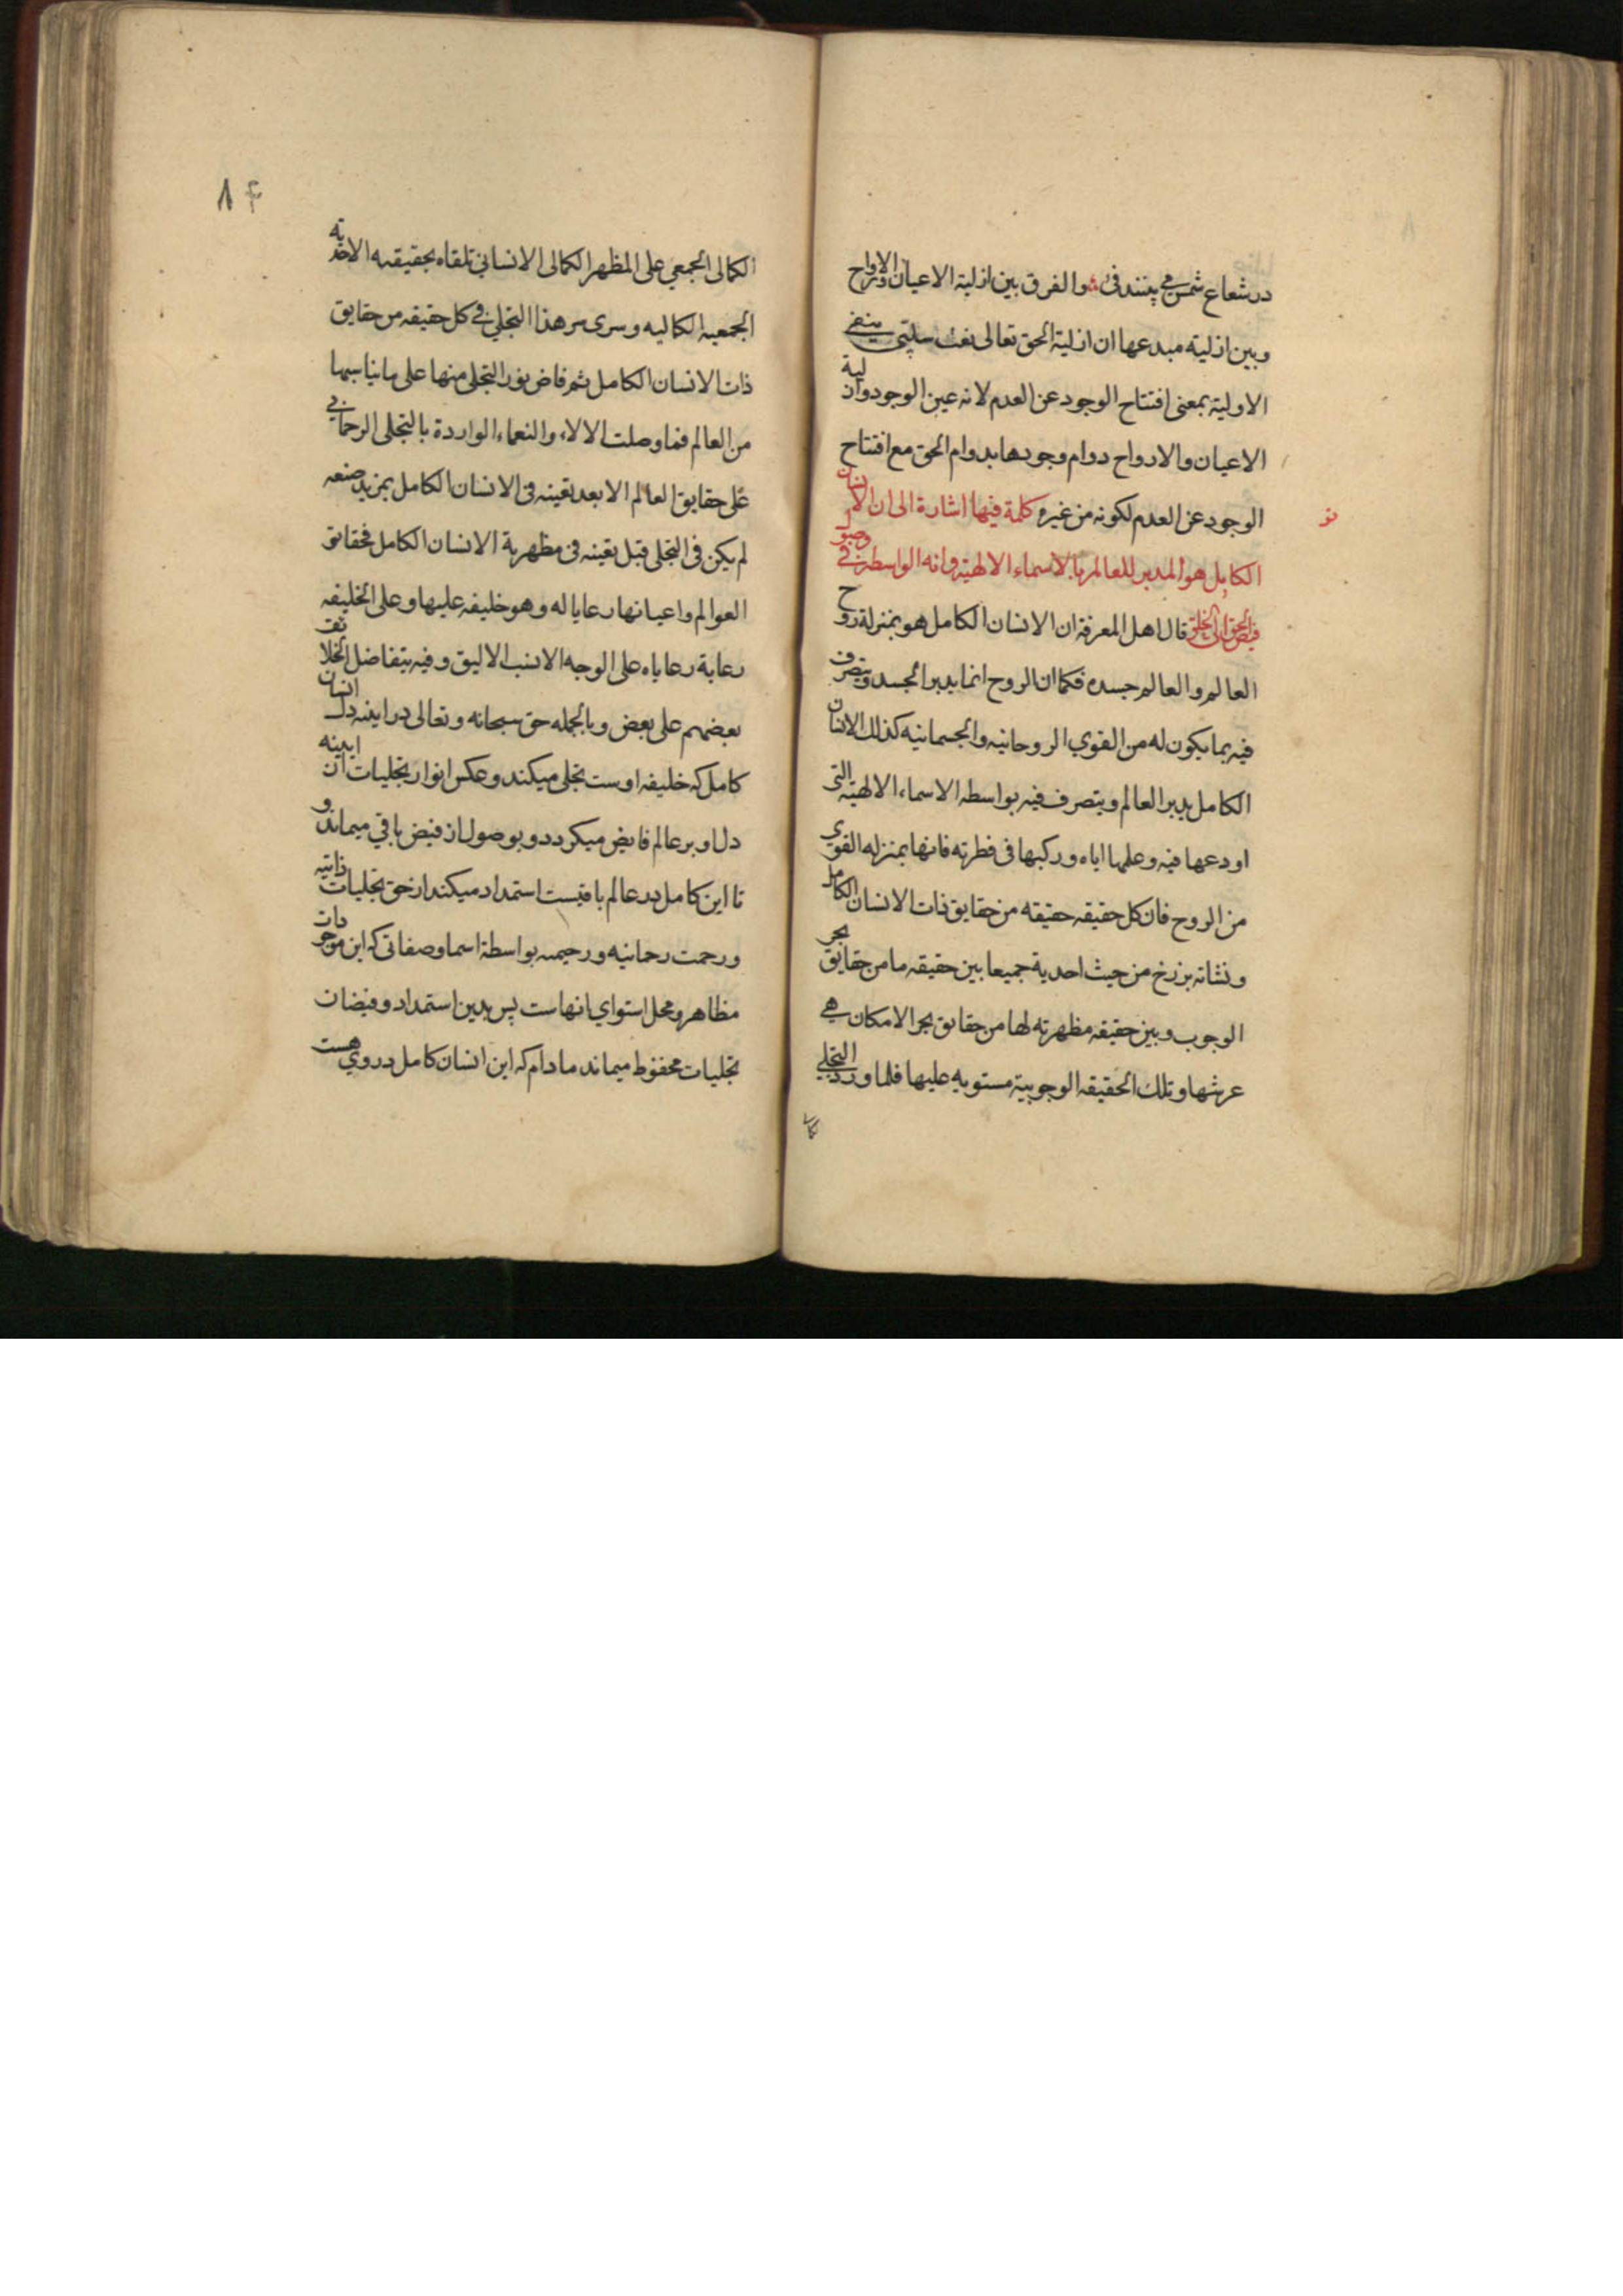 در شعاع شمس می بینند فی والفرق بین ازلیة الاعیان والارواح
وبین ازلیته مبدعها ان ازلیة الحق تعالی نعت سلبی ینفی
الاولیة بمعنی افتتاح الوجود عن العدم لانه عین الوجود وازلیة
الاعیان والارواح دوام وجودها بدوام الحق مع افتتاح
الوجود عن العدم لکونه من غیره کلمة فیها اشارة الی ان الانسان
الکامل هو المدبر للعالم بالاسماء الالهیة وانه الواسطه فی وصول
فیض الحق الی الخلق قال اهل المعرفة ان الانسان الکامل هو بمنزلة روح
العالم والعالم جسده فکما ان الروح انما یدبر الجسد ویتصرف
فیه بما یکون له من القوی الروحانیه والجسمانیه کذلک الانسان
الکامل یدبر العالم ویتصرف فیه بواسطه الاسماء الالهیة التی
اودعها فیه وعلمها ایاه ورکبها فی فطرته فانها بمنزله القوی
من الروح فان کل حقیقه حقیقه من حقایق ذات الانسان الکامل
ونشاته برزخ من حیث احدیة جمیعا بین حقیقه ما من حقایق بحر
الوجوب وبین حقیقه مظهریته لها من حقایق بحر الامکان هی
عرشها وتلک الحقیقه الوجوبیة مستویه علیها فلما ورد التجلی
الکمالی
۸۴
الکمالی الجمعی علی المظهر الکمالی الانسانی تلقاه بحقیقه الاحدیه
الجمعیه الکمالیه وسری سر هذا التجلی فی کل حقیقه من حقایق
ذات الانسان الکامل ثم فاض نور التجلی منها علی ما یناسبها
من العالم فما وصلت الالاء والنعماء الواردة بالتجلی الرحمانی
علی حقایق العالم الا بعد تعینه فی الانسان الکامل بمزید صنعه
لم یکن فی التجلی قبل تعینه فی مظهریة الانسان الکامل فحقائق
العوالم واعیانها رعایا له وهو خلیفه علیها وعلی الخلیفه
رعایة رعایاه علی الوجه الانسب الالیق وفیه یتفاضل الخلائف
بعضهم علی بعض وبالجمله حق سبحانه وتعالی در اینه دل انسان
کامل که خلیفه اوست تجلی میکند وعکس انوار تجلیات از اینه
دل او بر عالم فایض میکردد وبوصول ان فیض باقی میماند و
تا این کامل در عالم باقیست استمداد میکند از حق تجلیات ذاتیه
ورحمت رحمانیه ورحیمیه بواسطة اسما وصفاتی که این موجودات
مظاهر ومحل استوای انهاست پس بدین استمداد وفیضان
تجلیات محفوظ میماند مادام که این انسان کامل در وی هست